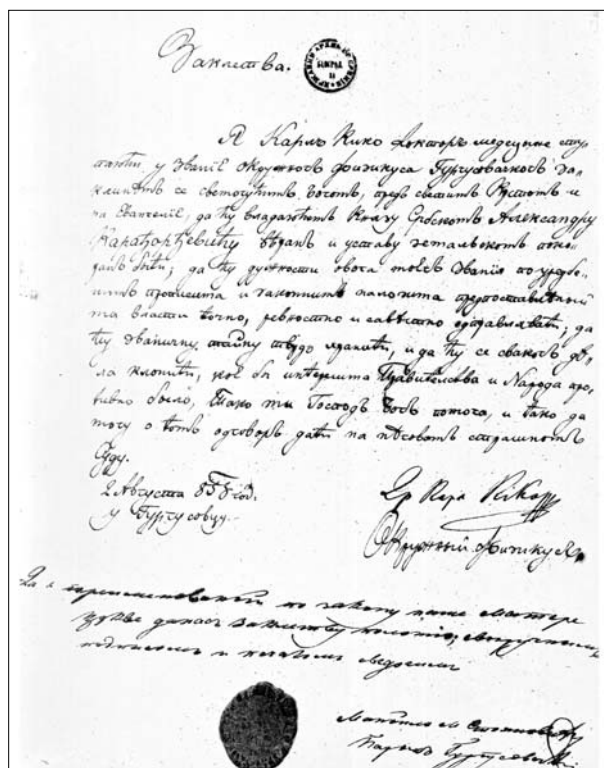 Заклетва.
Я Карлъ Кико Докторъ медецине сту
паюћи у званіє окружногъ физикуса Гургусовачкогъ за
клинѣмъ се светогућимъ Богомъ, предъ светимъ Крстомъ и
на Евангелію, да ћу владаюћемъ Князу Србскомъ Александру
Карађорђевићу вѣранъ и уставу земальскомъ поко
ранъ быти; да ћу дужности овога могъ званія по уредбе
нимъ прописима и законнимъ налозима предпоставлѣной
ми власти точно, ревностно и савѣстно одправляти; да
ћу званичну тайну тврдо хранити, и да ћу се свакогъ дѣ
ла клонити, коє бы интересима Правителства и Народа про
тивно было, Тако ми Господь Богъ помого, и тако да
могу о томъ одговоръ дати на нѣговомъ страшномъ
Суду.
2 Августа 858 год.
у Гургусовцу.
Др Карл Кико
Окружный Физикус
да є по закону наше Матере
Цркве данасъ заклетву положіо, своеручнимъ
подписомъ и печатомъ сведочимъ